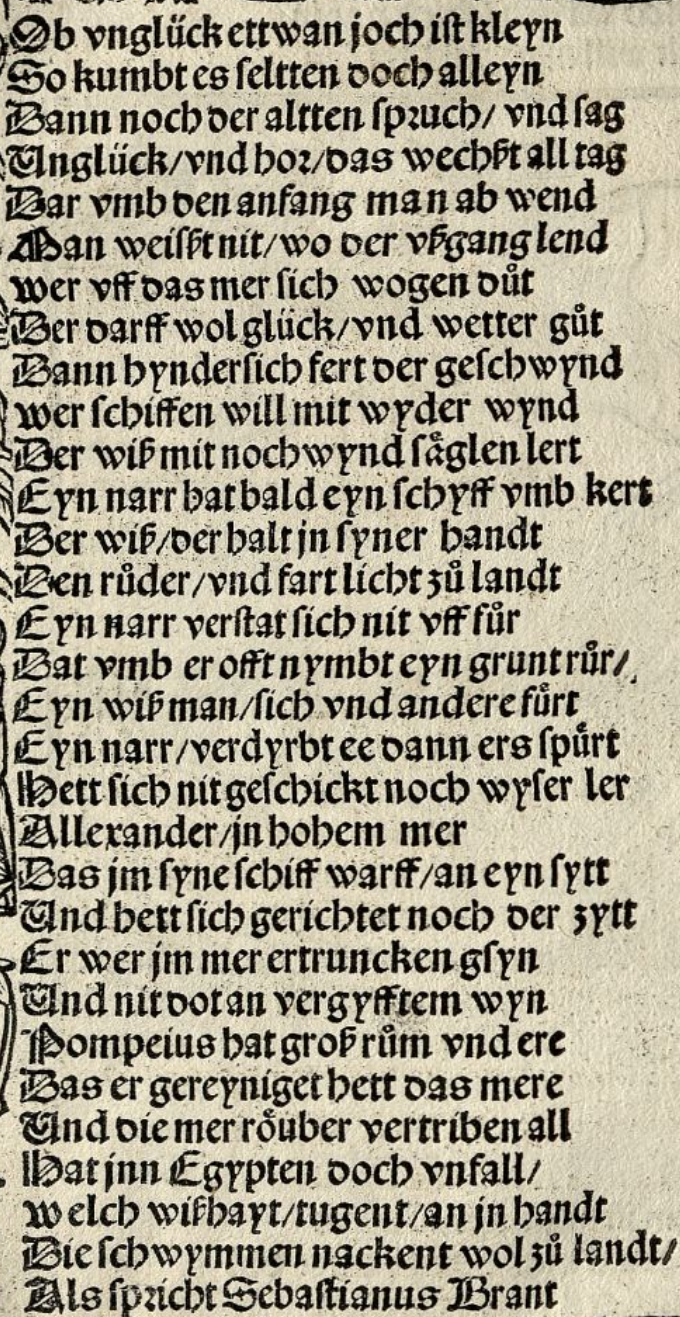 Ob vnglück ettwan joch ist kleyn
So kumbt es seltten doch alleyn
Dann noch der altten spruch/ vnd sag
Unglück/vnd hor/das wechßt all tag
Dar vmb den anfang man ab wend
Man weißt nit/wo der vßgang lend
Wer vff das mer sich wogen důt
Der darff wol glück/vnd wetter gůt
Dann hyndersich fert der geschwynd
Wer schiffen will mit wyder wynd
Der wiß mit nochwynd såglen lert
Eyn narr hat bald eyn schyff vmb kert
Der wiß/der halt jn syner handt
Den růder/vnd fart licht zů landt
Eyn narr verstat sich nit vff fůr
Dat vmb er offt nymbt eyn grunt růr/
Eyn wiß man/sich vnd andere fůrt
Eyn narr/verdyrbt ee dann ers spůrt
Hett sich nit geschickt noch wyser ler
Allexander/jn hohem mer
Das jm syne schiff warff/an eyn sytt
Und hett sich gerichtet noch der zytt
Er wer jm mer ertruncken gsyn
Und nit dot an vergyfftem wyn
Pompeius hat groß rům vnd ere
Das er gereyniget hett das mere
Und die mer rǒuber vertriben all
Hat jnn Egypten doch vnfall/
Welch wißhayt/tugent/an jn handt
Die schwymmen nackent wol zů landt/
Als spricht Sebastianus Brant